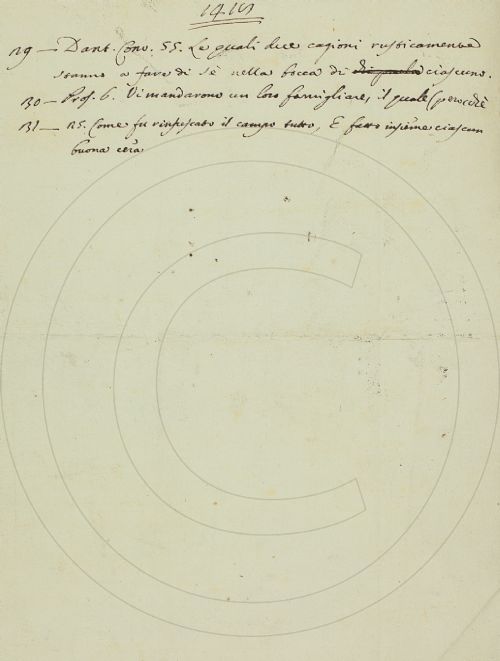 29 — Dant. Conv. 55. Le quali due cagioni rusticamente
stanno a fare di sè nella bocca di ciascuno.
30 — Pros. 6. Vi mandarono un loro famigliare, il quale (perocchè
31 — 25. Come fu rinfrescato il campo tutto, E fatto insieme ciascun
buona cera